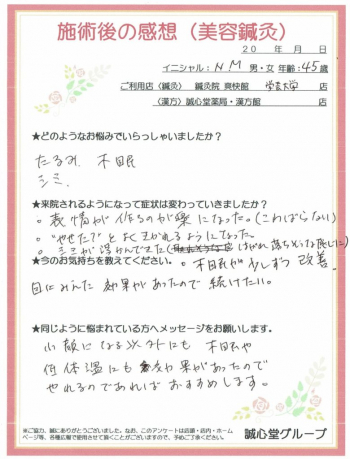 施術後の感想（美容鍼灸）
20　年　月　日
イニシャル：N M 男・女 年齢：45歳
ご利用店〈鍼灸〉 鍼灸院 爽快館 学芸大学 店
〈漢方〉誠心堂薬局・漢方館 店
★どのようなお悩みでいらっしゃいましたか？
たるみ 不眠
シミ
★来院されるようになって症状は変わっていきましたか？
○表情が作るのが楽になった。（こわばらない）
○"やせた？"とよくきかれるようになった。
○シミが浮かんできた はがれ落ちそうな感じに）
★今のお気持ちを教えてください。 ○不眠が少しずつ改善。
目にみえた効果があったので続けたい。
★同じように悩まれている方へメッセージをお願いします。
小顔になる以外にも 不眠や
低体温にも 効果があったので
やれるのであればおすすめします。
※ご協力、誠にありがとうございました。なお、このアンケートは店頭・店内・ホーム
ページ等、各種広報で使用させて頂くことがございますので、予めご了承ください。
誠心堂グループ